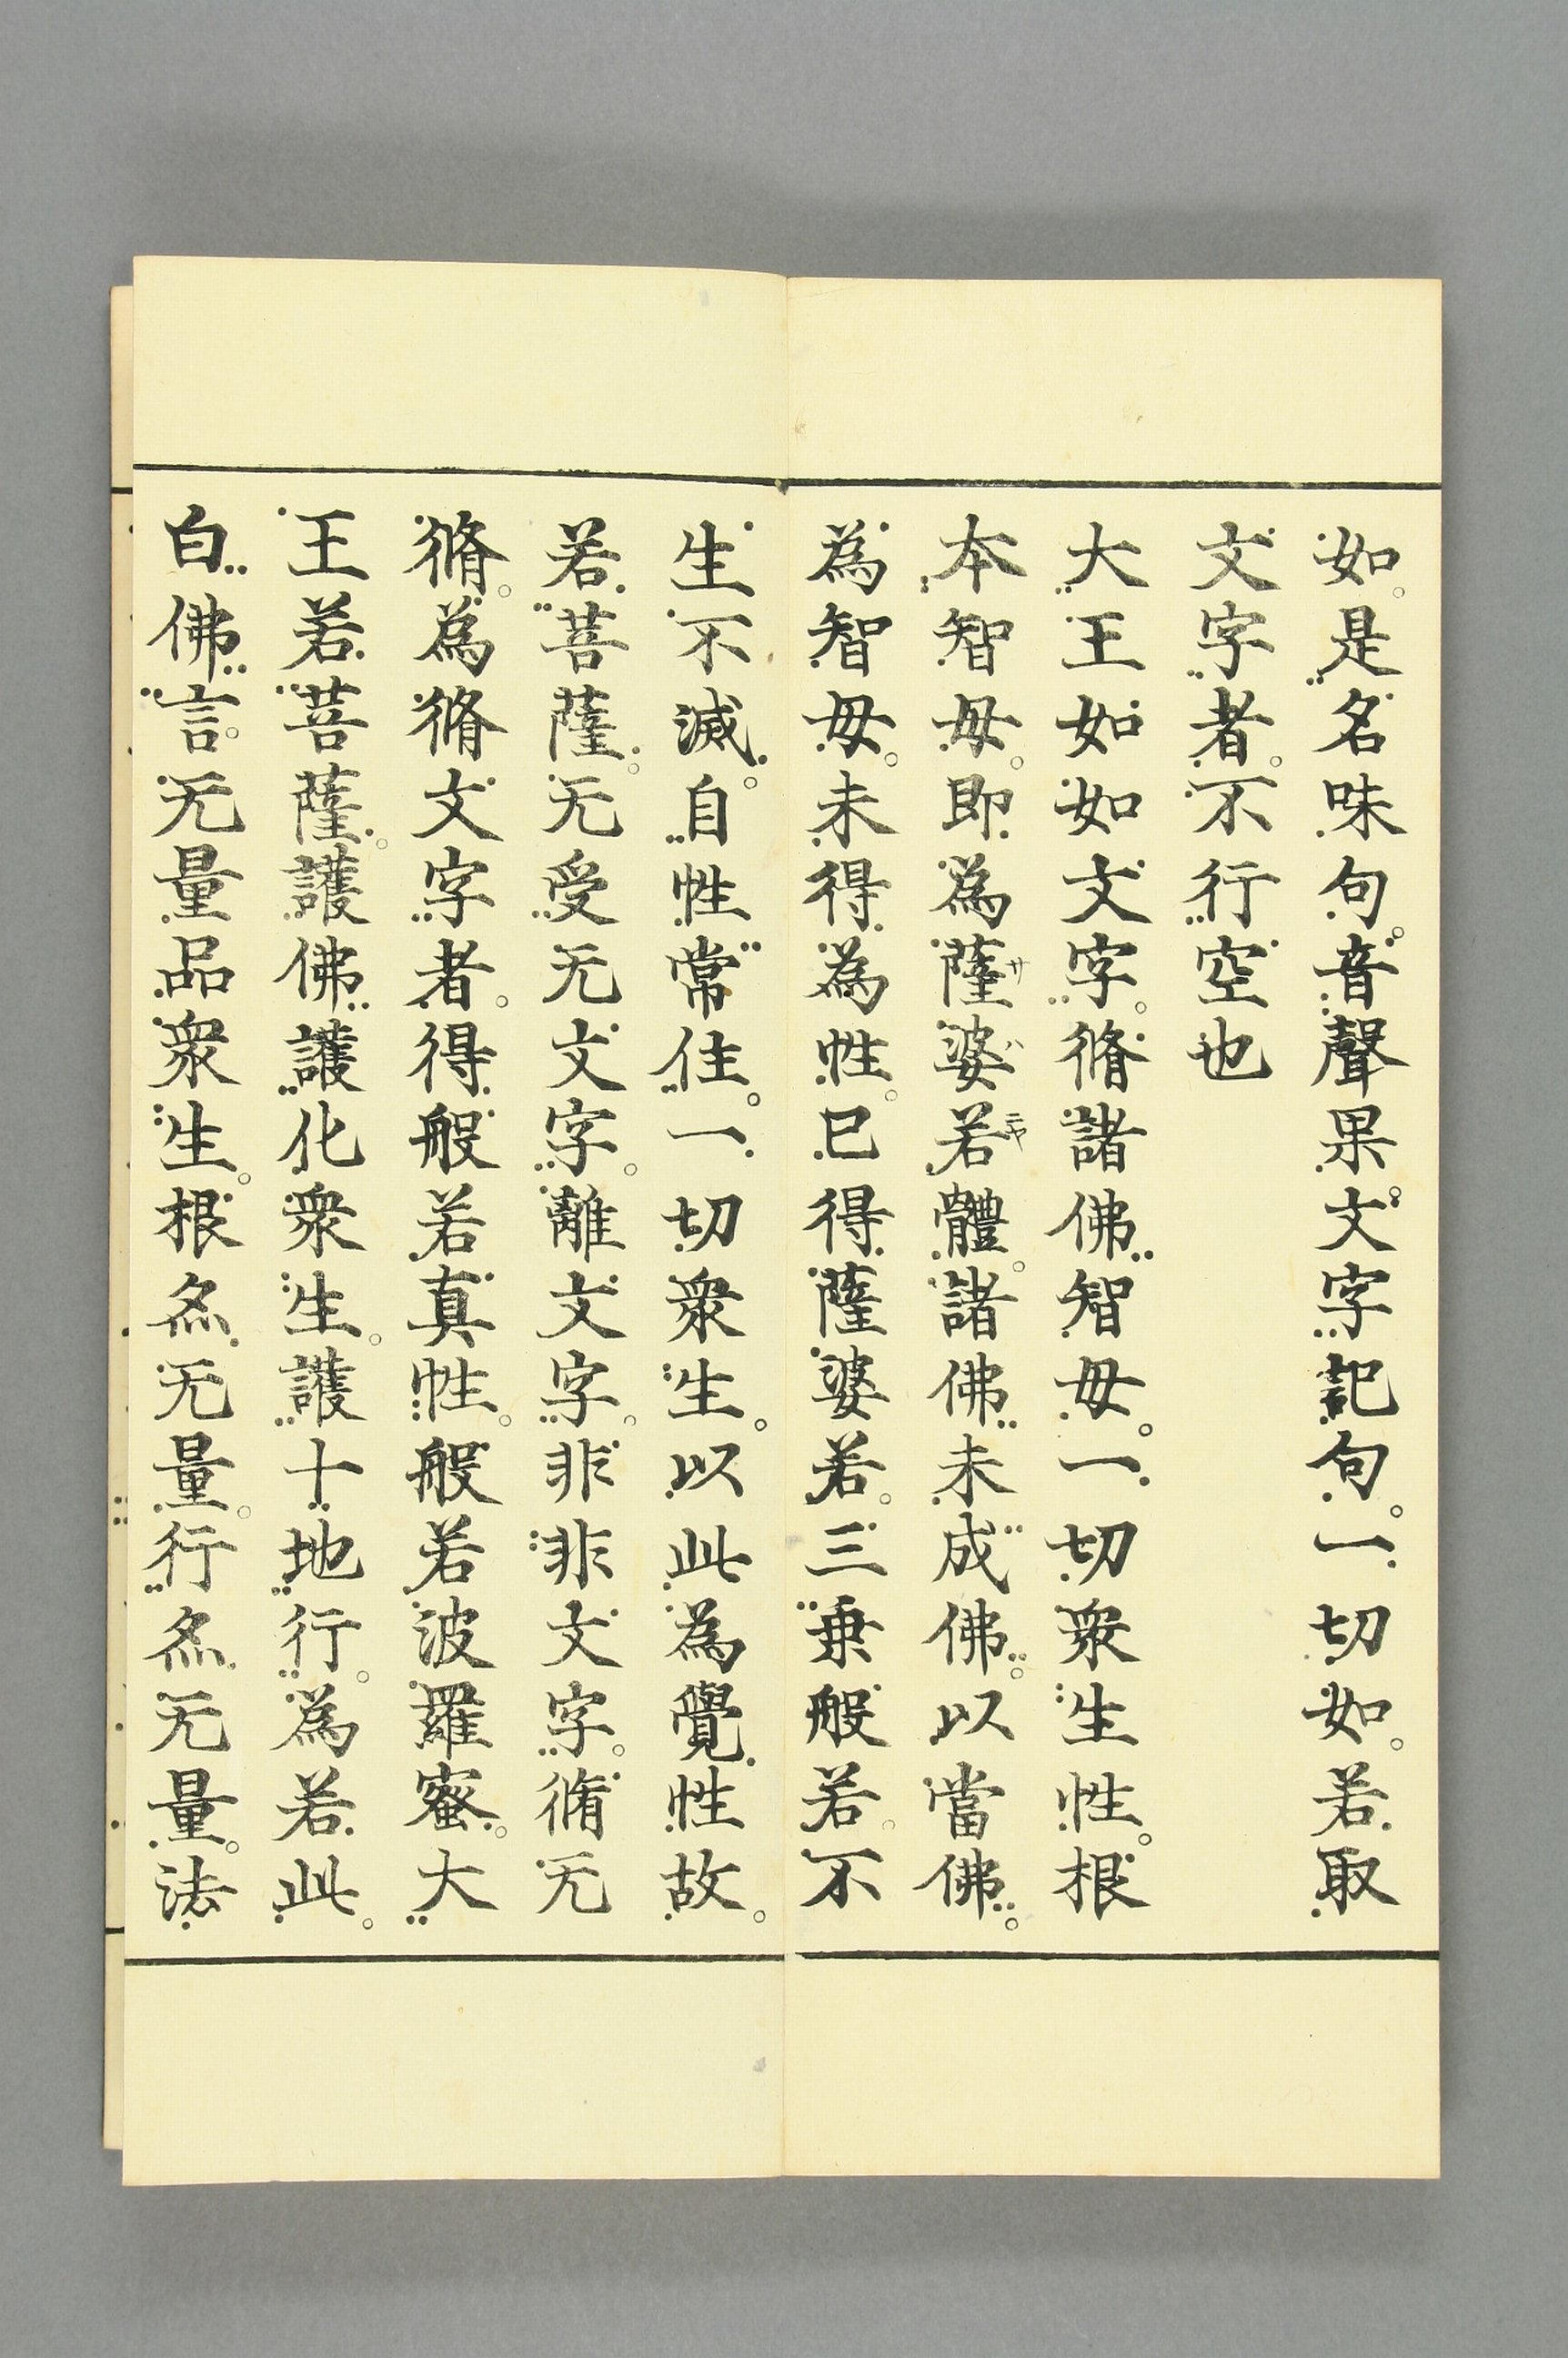 如。是名味句。音聲果。文字記句。一切如。若取
文字者。不行空也
大王如如文字。脩諸佛智毋。一切衆生性。根
本智毋。即為薩婆若體。諸佛未成佛。以當佛。
為智毋。未得為性。已得薩婆若。三乗般若。不
生不滅。自性常住。一切衆生。以此為覺性故。
若菩薩。无受无文字。離文字。非非文字。脩无
脩。為脩文字者。得般若真性。般若波羅蜜。大
王若菩薩。護佛護化衆生。護十地行。為若此。
白佛言。无量品衆生。根亦无量。行亦无量。法
サハニヤ